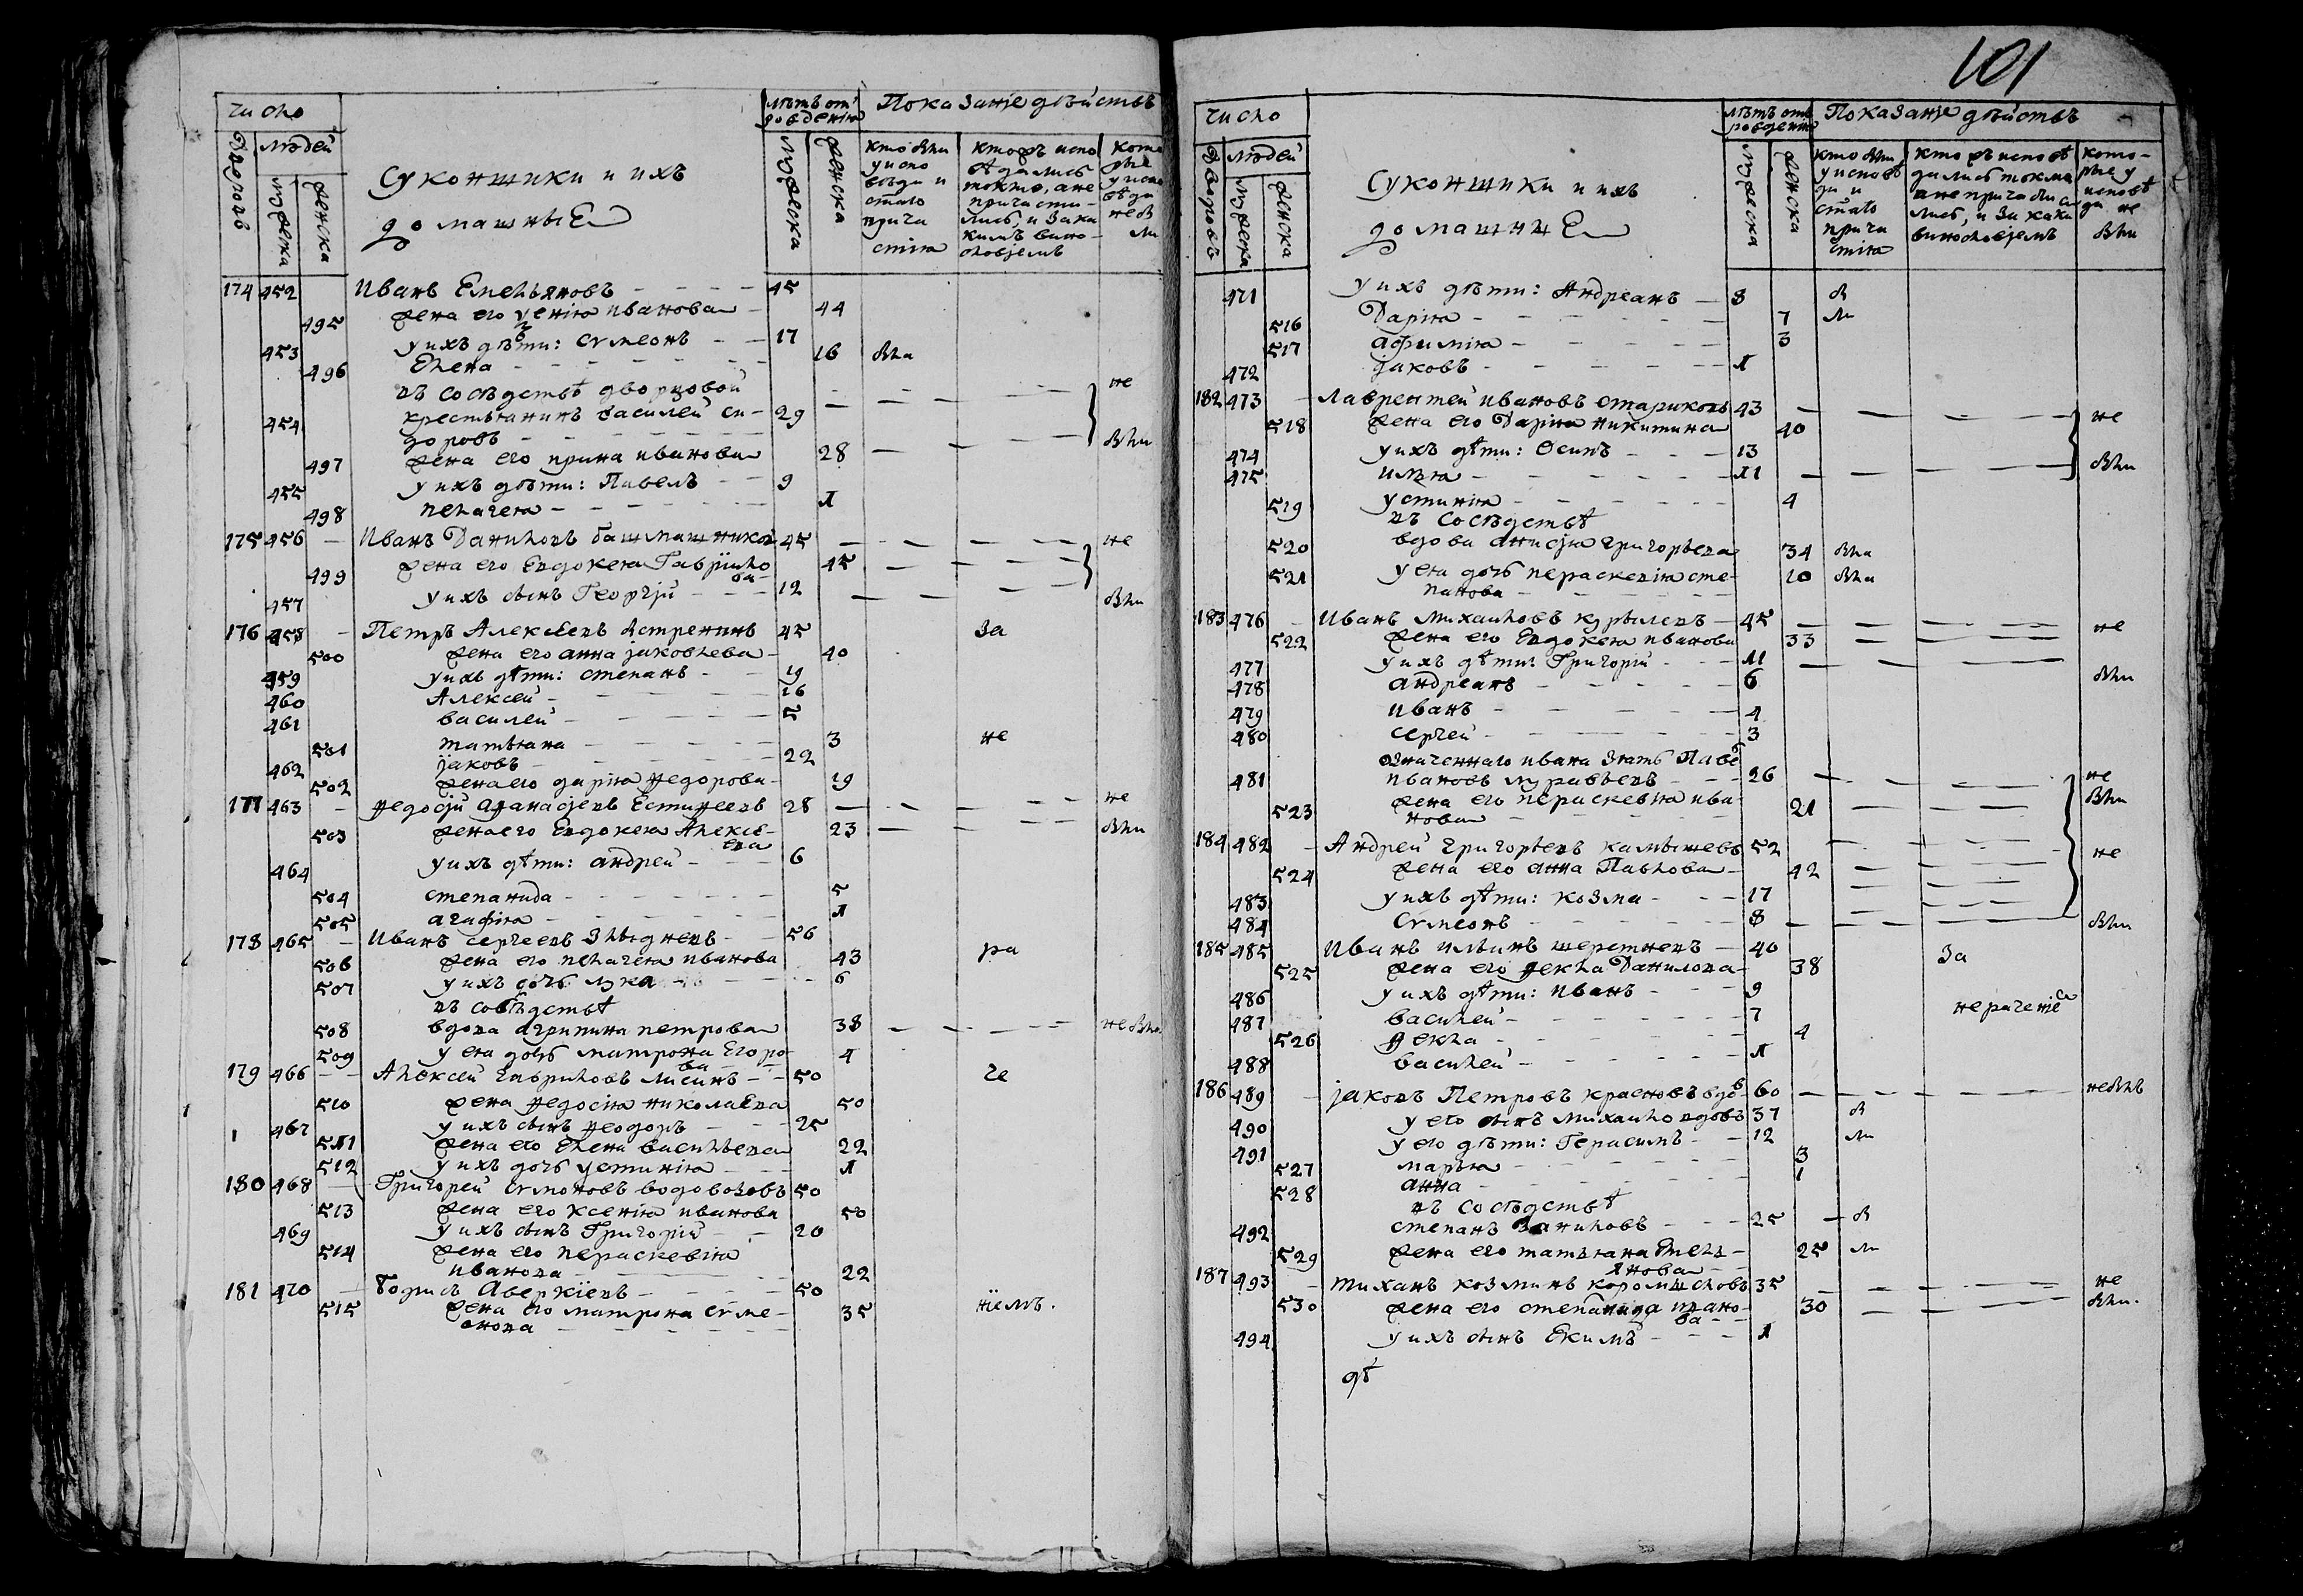 101
число
дворовъ
людей
мужеска
женска
Суконщики и ихъ
домашныЕ
лѣтъ от
рожденія
мужеска
женска
Показаніе дѣйствъ
кто были
у испо
вѣди и
с̃таго
прича
стія
кто испо
вѣдались
токмо, а не
причасти-
лись, и за ка
кимъ вино-
словіемъ
кото
рые
у испо
вѣди
не бы
ли
174 452 Иванъ Емельяновъ 45
495 жена его Ксенія иванова 44
453 у ихъ дѣти: симеонъ 17
496 Елена 16 была
въ сосѣдствѣ дворцовой не
454 крестьянинъ василей си- 29
доровъ были
497 жена его ирина иванова 28
455 у ихъ дѣти: Павелъ 9
498 пелагея 1
175 456 Иванъ Даниловъ башмашников 45 не
499 жена его Евдокея Гаврило 45
ва
457 у ихъ сынъ Георгій 12 были
176 458 Петръ Алексѣевъ Встренинъ 45 За
500 жена его анна јаковлева 40
459 у ихъ дѣти: степанъ 19
460 Алексей 16
461 василей 5
501 татьяна 3 не
462 јаковъ 22
502 жена его дарія ѳедорова 19
177 463 ѳедосій аѳанасјевъ Естиѳеевъ 28 не
503 жена его Евдокея Алексѣ- 23 были
ева
464 у ихъ дѣти: андрей 6
504 степанида 5
505 агафія 1
178 465 Иванъ сергеевъ Злыдневъ 56
506 жена его пелагея иванова 43 ра
507 у ихъ дочь 6
въ сосѣдствѣ
508 вдова агрипина петрова 38 не была
509 у ея дочь матрона Егоро 4
ва
179 466 Алексей гавриловъ лисинъ 50 че
510 жена ѳедосія николаЕва 50
467 у ихъ сынъ ѳеодоръ 25
511 жена его Елена васильева 22
512 у ихъ дочь устинія 1
180 468 Григорей симоновъ водовозовъ 50
513 жена его ксенія иванова 50
469 у ихъ сынъ Григорій 20
514 жена его пераскевія
иванова 22
181 470 борисъ Аверкіевъ 50
515 жена его матрона симе- 35 ніемъ.
онова
число
дворовъ
людей
мужеска
женска
Суконщики и ихъ
домашниЕ
лѣтъ отъ
рожденія
мужеска
женска
Показаніе дѣйствъ
кто были
у исповѣ
ди и
с̃таго
прича
стія
кто исповѣ
дались токмо
а не причасти
лись, и за каки
винословіемъ
кото-
рые у
исповѣ
ди не
были
471 у ихъ дѣти: Андреанъ 8 бы
516 Дарія 7 ли
517 афимія 3
472 јаковъ 1
182 473 лаврентей ивановъ стариковъ 43 не
518 жена его Дарія никитина 40
474 у ихъ дѣти: Осипъ 13
475 илья 11 были
519 устинія 4
въ сосѣдствѣ
520 вдова анисја григорьева 34 была
521 у ея дочь пераскевія сте- 10 была
панова
183 476 Иванъ михаиловъ курылевъ 45 не
522 жена его Евдокея иванова 33
477 у ихъ дѣти: Григорій 11
478 андреанъ 6 были
479 иванъ 4
480 сергей 3
означеннаго ивана зять Павел
481 ивановъ муравьевъ 26 не
523 жена его пераскевія ива- 21 были
нова
184 482 Андрей григорьевъ калмыневъ 52 не
524 жена его анна Павлова 42
483 у ихъ дѣти: козма 17
484 симеонъ 8 были
185 485 Иванъ ильинъ шеретневъ 40 За
525 жена его ѳекла Данилова 38
486 у ихъ дѣти: иванъ 9
487 василей 7 нераченіе
526 ѳекла 4
488 василей 1
186 489 јаковъ Петровъ красновъ вдо- 60 не былъ
490 у его сынъ михаило вдовъ 37 бы
491 у его дѣти: Герасимъ 12 ли
527 марья 3
528 анна 1
въ сосѣдствѣ
492 степанъ Даниловъ 25 бы
529 жена его татьяна Емель 25 ли
янова
187 493 тиханъ козминъ коромысловъ 35 не
530 жена его степанида ивано- 30 были.
ва
494 у ихъ сынъ Екимъ 1
дѣ